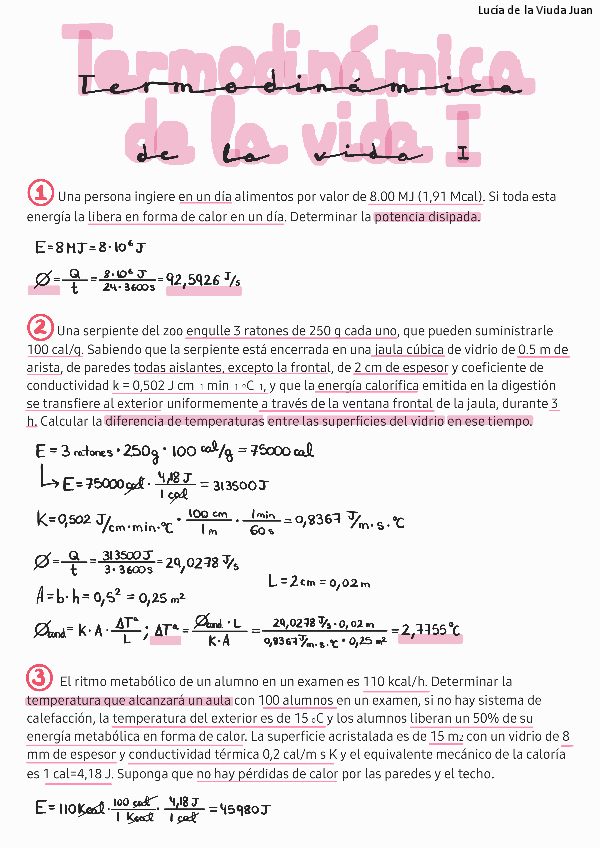 Lucía de la Viuda Juan
Termodinámica
de la vida I
1 Una persona ingiere en un día alimentos por valor de 8.00 MJ (1,91 Mcal). Si toda esta
energía la libera en forma de calor en un día. Determinar la potencia disipada.
E = 8 MJ = 8·10⁶ J
Ø = Q/t = 8·10⁶ J / 24·3600s = 92,5926 J/s
2 Una serpiente del zoo engulle 3 ratones de 250 g cada uno, que pueden suministrarle
100 cal/g. Sabiendo que la serpiente está encerrada en una jaula cúbica de vidrio de 0.5 m de
arista, de paredes todas aislantes, excepto la frontal, de 2 cm de espesor y coeficiente de
conductividad k = 0,502 J cm -1 min -1 ºC -1, y que la energía calorífica emitida en la digestión
se transfiere al exterior uniformemente a través de la ventana frontal de la jaula, durante 3
h. Calcular la diferencia de temperaturas entre las superficies del vidrio en ese tiempo.
E = 3 ratones · 250g · 100 cal/g = 75000 cal
↳ E = 75000 cal · 4,18 J / 1 cal = 313500 J
K = 0,502 J/cm·min·ºC · 100 cm / 1 m · 1 min / 60 s = 0,8367 J/m·s·ºC
Ø = Q/t = 313500 J / 3·3600s = 29,0278 J/s
L = 2 cm = 0,02 m
A = b·h = 0,5² = 0,25 m²
Øcond = K·A· ΔTª/L ; ΔTª = Øcond·L / K·A = 29,0278 J/s · 0,02 m / 0,8367 J/m·s·ºC · 0,25 m² = 2,7755 ºC
3 El ritmo metabólico de un alumno en un examen es 110 kcal/h. Determinar la
temperatura que alcanzará un aula con 100 alumnos en un examen, si no hay sistema de
calefacción, la temperatura del exterior es de 15 ºC y los alumnos liberan un 50% de su
energía metabólica en forma de calor. La superficie acristalada es de 15 m2 con un vidrio de 8
mm de espesor y conductividad térmica 0,2 cal/m s K y el equivalente mecánico de la caloría
es 1 cal=4,18 J. Suponga que no hay pérdidas de calor por las paredes y el techo.
E = 110 Kcal · 100 cal / 1 Kcal · 4,18 J / 1 cal = 45980 J